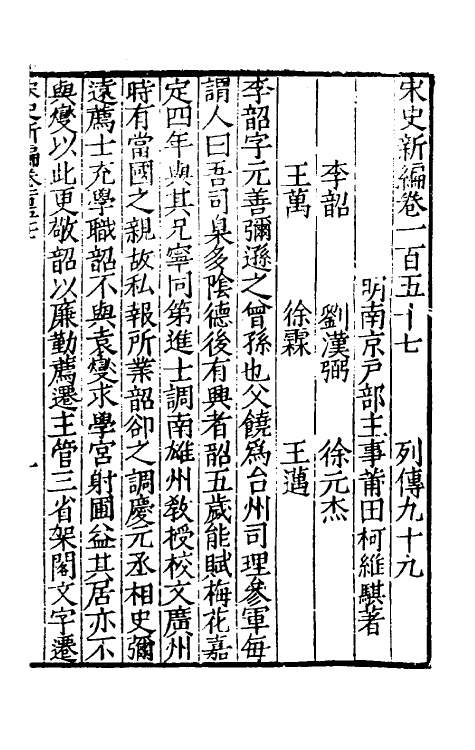 宋史新編卷一百五十七 列傳九十九
明南京戶部主事莆田柯維騏著
李韶 劉漢弼 徐元杰
王萬 徐霖 王邁
李韶字元善彌遜之曾孫也父饒爲台州司理參軍每
謂人曰吾司臬多陰德後有興者韶五歲能賦梅花嘉
定四年與其兄寧同第進士調南雄州敎授校文廣州
時有當國之親故私報所業韶卻之調慶元丞相史彌
遠薦士充學職韶不與袁燮求學宮射圃益其居亦不
與燮以此更敬韶以廉勤薦遷主管三省架閣文字遷
宋史新編卷
一